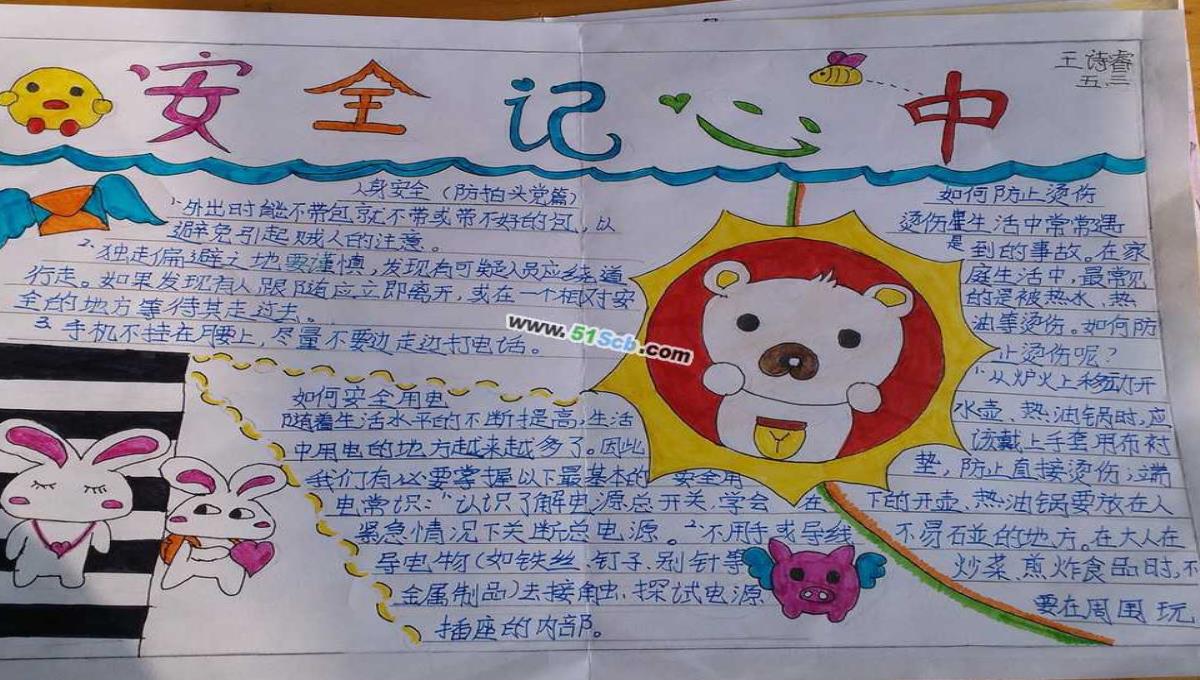 安全记心中
王诗睿
五三
人身安全(防拍头党篇)
1、外出时能不带包就不带或带不好的包,以
避免引起贼人的注意。
2、独走偏避之地要谨慎,发现有可疑人员应绕道
行走。如果发现有人跟随应立即离开,或在一个相对安
全的地方等待其走过去。
3、手机不挂在腰上,尽量不要边走边打电话。
www.51Scb.com
如何安全用电
随着生活水平的不断提高,生活
中用电的地方越来越多了。因此,
我们有必要掌握以下最基本的安全用
电常识:1、认识了解电源总开关,学会在
紧急情况下关断总电源。2、不用手或导线
导电物(如铁丝、钉子、别针等
金属制品)去接触、探试电源
插座的内部。
如何防止烫伤
烫伤是生活中常常遇
到的事故。在家
庭生活中,最常见
的是被热水、热
油等烫伤。如何防
止烫伤呢?
1、从炉火上移动开
水壶、热油锅时,应
该戴上手套用布衬
垫,防止直接烫伤;端
下的开壶、热油锅要放在人
不易碰的地方。在大人在
炒菜、煎炸食品时,不
要在周围玩